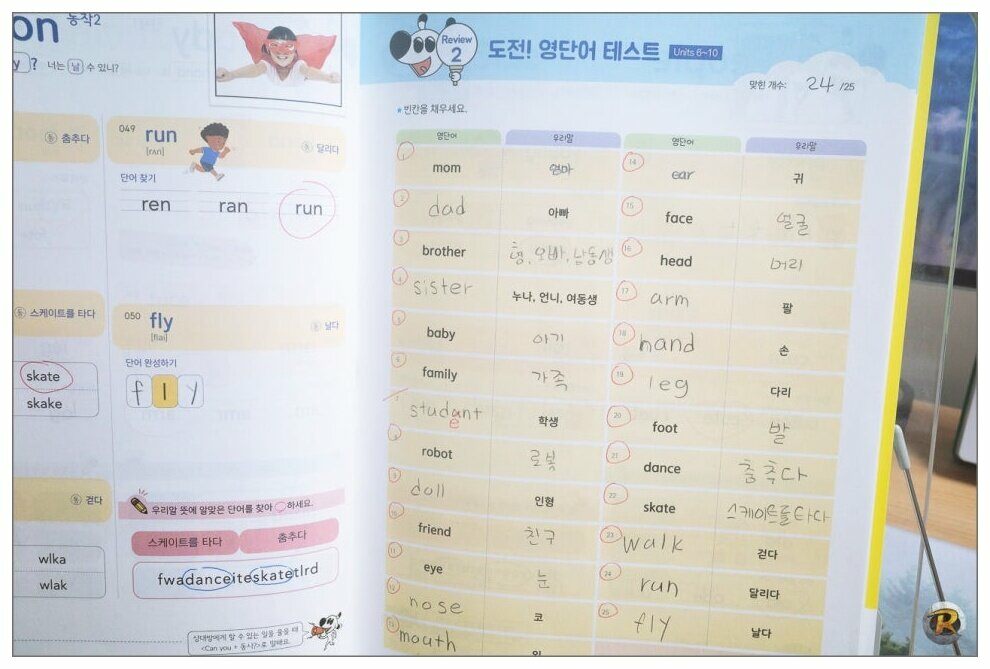 on 동작2
y ? 너는 날 수 있니?
동 춤추다
049 run
[rʌn]
동 달리다
단어 찾기
ren ran run
동 스케이트를 타다
skate
skake
050 fly
[flai]
동 날다
단어 완성하기
f l y
동 걷다
wlka
wlak
우리말 뜻에 알맞은 단어를 찾아 하세요.
스케이트를 타다 춤추다
fwadanceiteskatetlrd
상대방에게 할 수 있는 일을 물을 때
<Can you + 동사?>로 말해요.
Review
2
도전! 영단어 테스트 Units 6~10
맞힌 개수: 24 /25
*빈칸을 채우세요.
영단어 우리말 영단어 우리말
1 mom 엄마
2 dad 아빠
3 brother 형, 오빠, 남동생
4 sister 누나, 언니, 여동생
5 baby 아기
6 family 가족
7 studant 학생
e
8 robot 로봇
9 doll 인형
10 friend 친구
11 eye 눈
12 nose 코
13 mouth 입
14 ear 귀
15 face 얼굴
16 head 머리
17 arm 팔
18 hand 손
19 leg 다리
20 foot 발
21 dance 춤추다
22 skate 스케이트를타다
23 walk 걷다
24 run 달리다
25 fly 날다
R